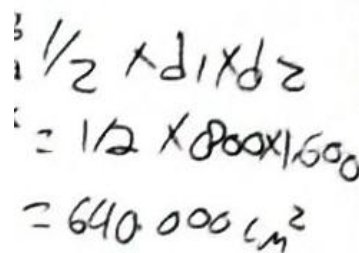 1/2 × d1 × d2
= 1/2 × 800 × 1.600
= 640.000 cm²